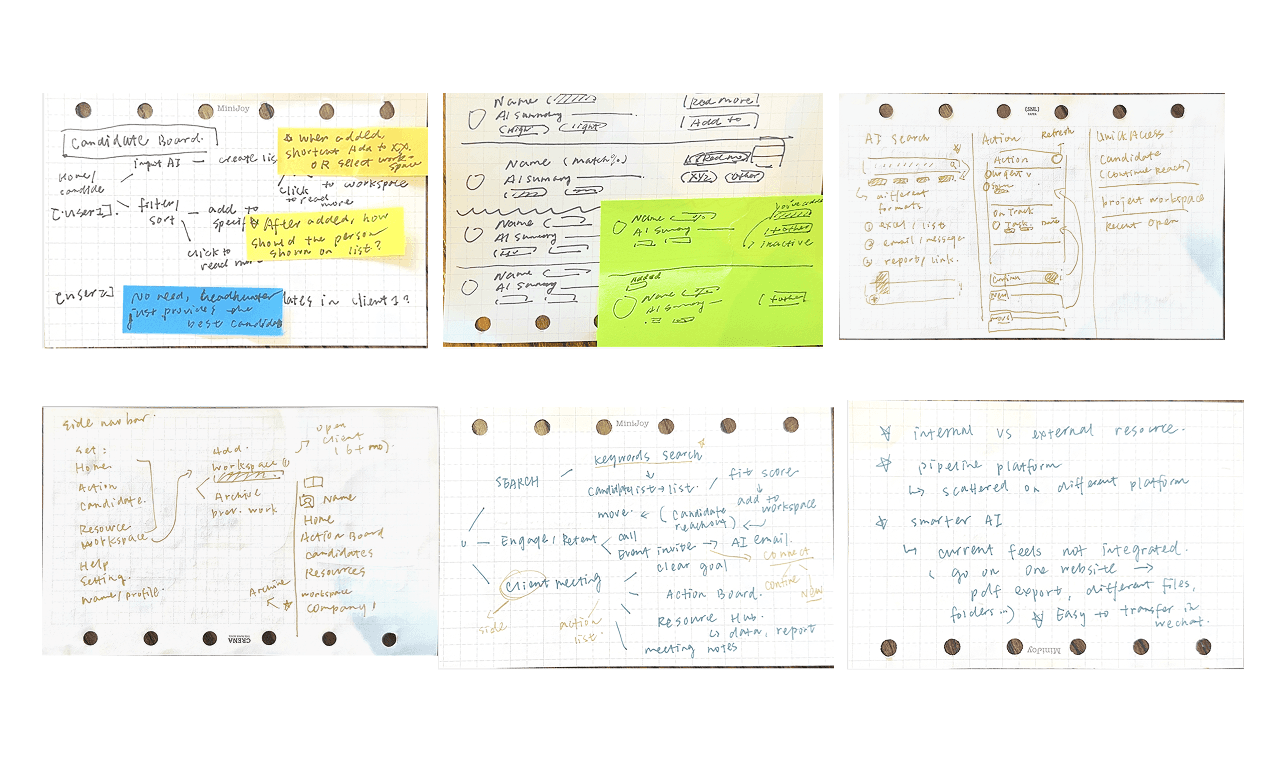 MiniJoy
Candidate Board.
input AI — create list
Home/
candidate
[user1].
filter/
sort
add to
specific
click to
read more
click to workspace
to read
more
When added,
shortcut Add to XX.
OR select work-
space
After added, how
should the person
shown on list?
[user2]
dates in client 1?
No need, headhunter
just provides the
best candidate
Name
AI summary
(High) (light)
Read more
Add to
Name (Match%)
AI summary
Read more
(XYZ) (other)
Name
AI summary
Name
AI summary
Name
AI summary
you've added
+ other
inactive
added
Name
AI summary
+ other
AI Search
different
formats
① excel / list
② email / message
③ report / link.
Action
Refresh
Action
Urgent
On Track
Quick Access
Candidate
(Continue Reach)
project workspace
Recent open
side navbar.
set:
Home
Action
candidate.
Resource
workspace
Help
setting.
name/profile.
Add.
workspace ①
Archive
prev. work
open
client
Name
Home
Action Board
Candidates
Resources
workspace
company 1
Archive
CRENA
MiniJoy
keywords search
SEARCH
candidate list → list. / fit score
add to
workspace
move. ← (candidate
reachout)
U — Engage / Retent
call
Event invite → AI email.
clear goal
connect
confirm
new
Client meeting
Action Board.
side
action
list.
Resource Hub.
↳ data, report
meeting notes
internal vs external resource.
pipeline platform
↳ scattered on different platform
smarter AI
↳ current feels not integrated.
( go on one website →
pdf export, different files,
folders...) Easy to transfer in
wechat.
MiniJoy